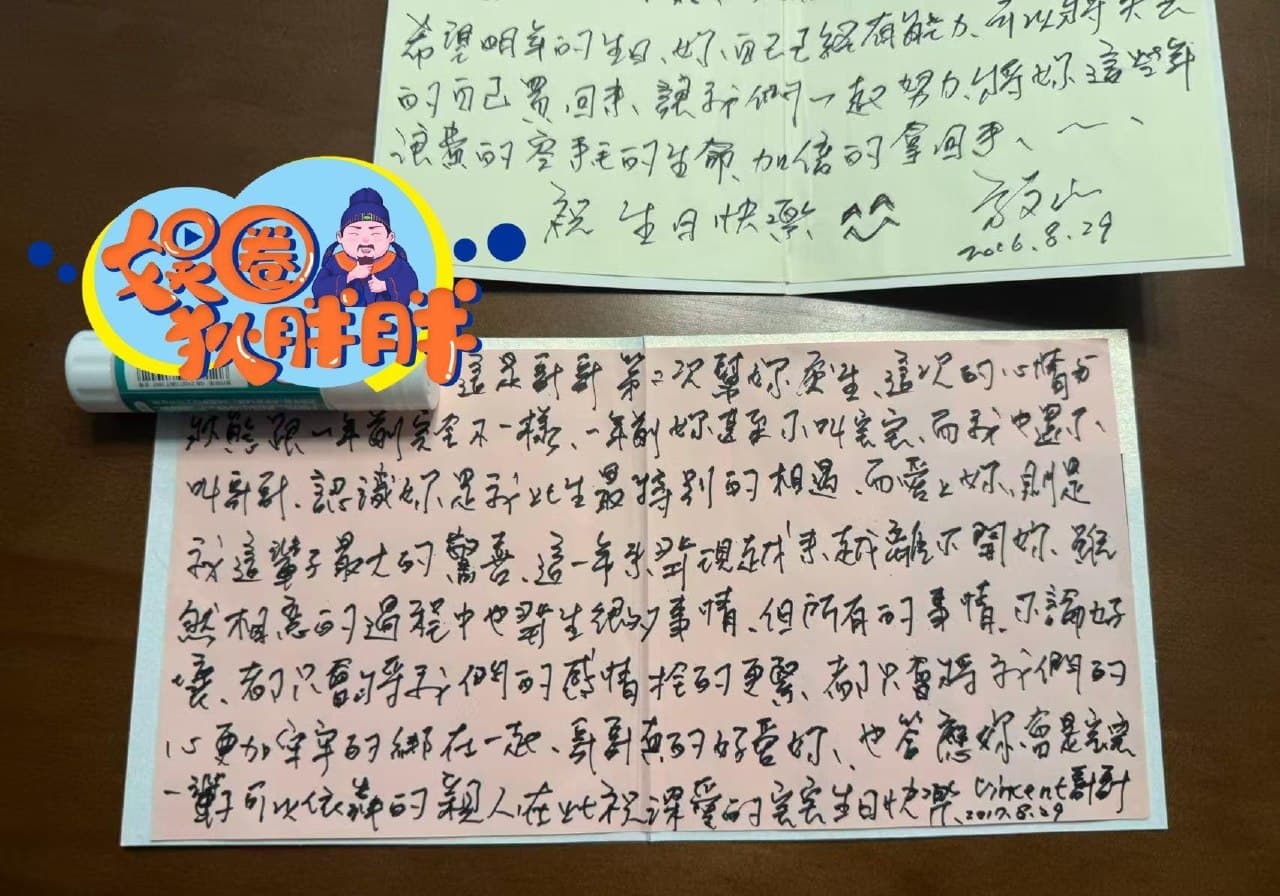 希望明年的生日、妳、自己已經有能力、可以將失去
的自己買回來、讓我們一起努力、將妳這些年
浪費的空耗的生命、加倍的拿回來、
祝 生日快樂 ^^
2016.8.29
娛圈
狄胖胖
這是哥哥第二次幫妳慶生、這次的心情與
狀態跟一年前完全不一樣、一年前妳甚至不叫宝宝、而我也還不、
叫哥哥、認識妳是我此生最特別的相遇、而愛上妳、則是
我這輩子最大的驚喜、這一年來、發現越來越離不開妳、雖
然相戀的過程中也發生很多事情、但所有的事情、不論好
壞、都只會將我們的感情拴的更緊、都只會將我們的
心更加牢牢的綁在一起、哥哥真的好愛妳、也答應妳會是宝宝
一輩子可以依靠的親人在此祝深愛的宝宝生日快樂、Vincent哥哥
2017.8.29